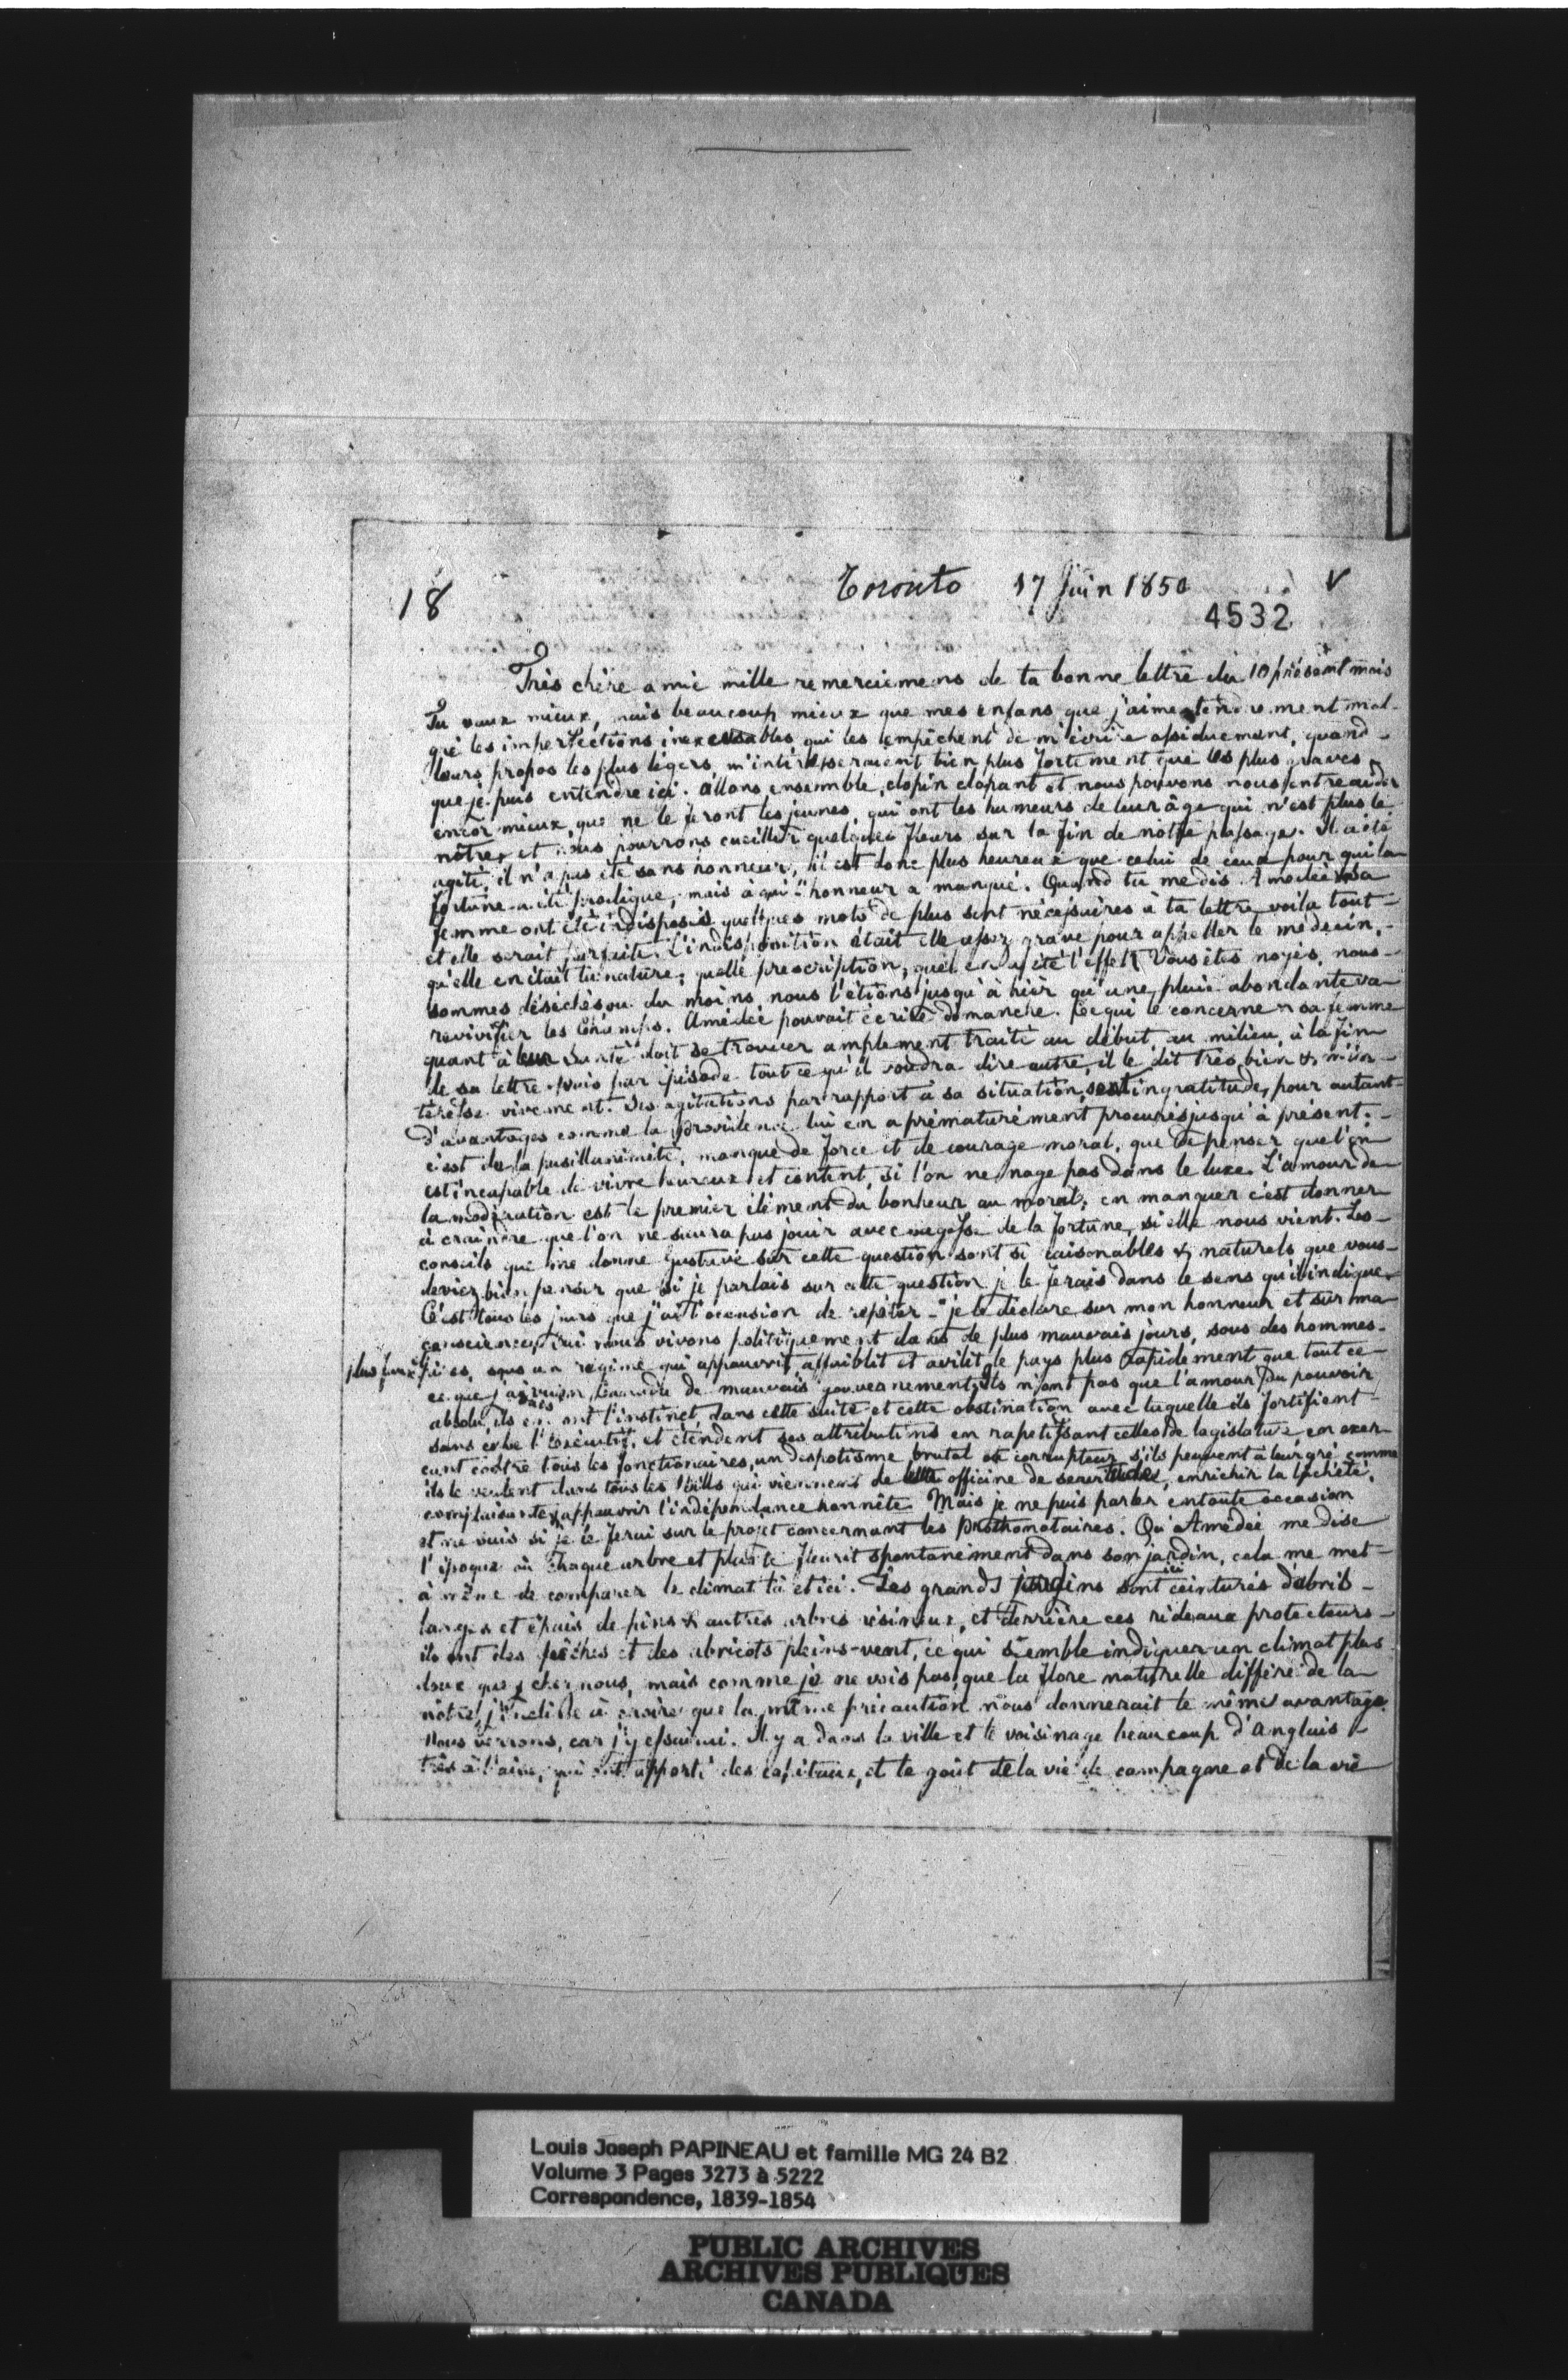 18
Toronto 17 Juin 1850
4532
Très chère amie mille remerciemens de ta bonne lettre du 10 présent mois
Tu vaux mieux, mais beaucoup mieux que mes enfans que j'aime tendrement mal-
gré les imperfections inexcusables qui les empêchent de m'écrire assiduement, quand
leurs propos les plus légers, m'intéresseraient bien plus fortement que les plus graves
que je puis entendre ici. Allons ensemble, clopin clopant et nous pouvons nous entreaider
encor mieux, que ne le feront les jeunes, qui ont les humeurs de leur âge qui n'est plus le
nôtre, et nous pourrons cueillir quelques fleurs sur la fin de notre passage. Il a été
agité, il n'a pas été sans honneur, il est donc plus heureux que celui de ceux pour qui la
fortune a été prodigue, mais à qui l'honneur a manqué. Quand tu me dis Amédée & sa
femme ont été indisposés quelques mots de plus sont nécessaires à ta lettre voila tout
et elle serait parfaite. L'indisposition était elle assez grave pour appeller le médecin,
qu'elle en était la nature; quelle prescription, quel en a été l'effet. Vous êtes noyés, nous
sommes déséchés ou du moins nous l'étions jusqu'à hier qu'une pluie abondante va
revivifier les champs. Amédée pouvait écrire dimanche. Ce qui le concerne & sa femme
quant à leur santé doit se trouver amplement traité au début, au milieu, à la fin
de sa lettre. Puis par épisode tout ce qu'il voudra dire autre, il le dit très bien & m'in-
téresse vivement. Ses agitations par rapport à sa situation, sont ingratitude, pour autant
d'avantages comme la providence lui en a prématurément procurés jusqu'à présent.
c'est de la pusillanimité, manque de force et de courage moral, que de penser que l'on
est incapable de vivre heureux et content, si l'on ne nage pas dans le luxe. L'amour de
la modération est le premier élément du bonheur au moral; en manquer c'est donner
à craindre que l'on ne saura pas jouir avec sagesse de la fortune, si elle nous vient. Les
conseils que me donne Gustave sur cette question sont si raisonables & naturels que vous
deviez bien penser que si je parlais sur cette question je le ferais dans le sens qu'il indique.
C'est tous les jours que j'ai l'occasion de répéter - "je le déclare sur mon honneur et sur ma
conscience, que nous vivons politiquement dans de plus mauvais jours, sous des hommes
plus sous un regime qui appauvrit, affaiblit et avilit le pays plus rapidement que tout ce
ce que j'ai vu en Canada de mauvais gouvernement. Ils n'ont pas que l'amour du pouvoir
absolu, ils en ont l'instinct dans cette suite et cette obstination avec laquelle ils fortifient
sans cesse l'exécutif, et étendent ses attributions en rapetissant celles de legislature en exer-
çant contre tous les fonctionaires, un despotisme brutal et corrupteur s'ils peuvent à leur gré comme
ils le veulent dans tous les bills qui viennent de cette officine de servitudes, enrichir la lâcheté
complaisante & appauvrir l'indépendance honnête. Mais je ne puis parler en toute occasion
et ne sais si je le ferai sur le projet concernant les Prothonotaires. Qu'Amédée me dise
l'époque où chaque arbre et plante fleurit spontanément dans son jardin, cela me met
à même de comparer le climat là et ici. Les grands jardins ici sont ceinturés d'abris
larges et épais de pins & autres arbres résineux, et derrière ces rideaux protecteurs
ils ont des pêches et des abricots pleins-vent, ce qui semble indiquer un climat plus
doux que chez nous, mais comme je ne vois pas que la flore naturelle diffère de la
nôtre, j'incline à croire que la même précaution nous donnerait le même avantage.
Nous verrons, car j'y essaierai. Il y a dans la ville et le voisinage beaucoup d'anglais
très à l'aise, qui ont apporté des capitaux, et le goût de la vie de campagne et de la vie
Louis Joseph PAPINEAU et famille MG 24 B2
Volume 3 Pages 3273 à 5222
Correspondence, 1839-1854
PUBLIC ARCHIVES
ARCHIVES PUBLIQUES
CANADA